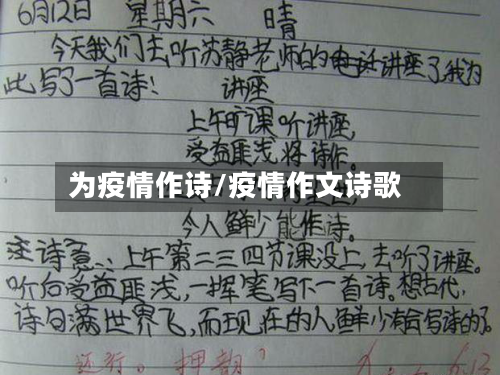 6月12日 星期六 晴
今天我们去听苏静老师的讲座了,我为
此写了一首诗!
讲座
上午旷课听讲座,
受益匪浅将诗作。
为疫情作诗/疫情作文诗歌
今人鲜少能作诗。
注诗意:上午第二三四节课没上,去听了讲座。
听后受益匪浅,一挥笔写下一首诗。想古代,
诗句满世界飞,而现在的人鲜少有会写诗的了。
还行。押韵